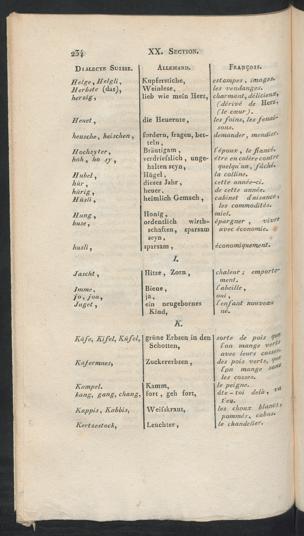 234 XX. Section.
Dialecte Suisse. Allemand. François.
Helge, Helgli, Kupferstiche, estampes, images.
Herbste (das), Weinlese, les vendanges.
herzig, lieb wie mein Herz, charmant, délicieux,
(dérivé de Herz,
(le cœur).
Heuet, die Heuernte, les foins, les fenai-
sons.
heusche, heischen, fordern, fragen, bet-
teln, demander, mendier.
Hochzyter, Bräutigam, l'époux, le fiancé.
verdriefslich, unge-
halten seyn, être en colère contre
quelqu'un, fâché.
Hubel, Hügel, la colline.
hür, dieses Jahr, cette année-ci.
hürig, heuer, de cette année.
Hüsli, heimlich Gemach, cabinet d'aisance,
les commodités.
Hung, Honig, miel.
huse, ordentlich wirth-
schaften, sparsam
seyn, épargner, vivre
avec économie.
husli, sparsam, économiquement.
I.
Jascht, Hitze, Zorn, chaleur; emporte-
ment.
Imme, Biene, l'abeille,
jo, joa, ja, oui,
Jugel, ein neugebornes
Kind, l'enfant nouveau
né.
K.
Käfe, Kifel, Käfel, grüne Erbsen in den
Schotten, sorte de pois que
l'on mange verts
avec leurs cosses.
Käfermues, Zuckererbsen, des pois verts, que
l'on mange sans
les cosses.
Kamm, le peigne.
kang, gang, chang, fort, geh fort, ôte-toi delà, va
t'en.
Kappis, Kabbis, Weifskraut, les choux blancs,
pommés, cabus.
Kertzestock, Leuchter, le chandelier.